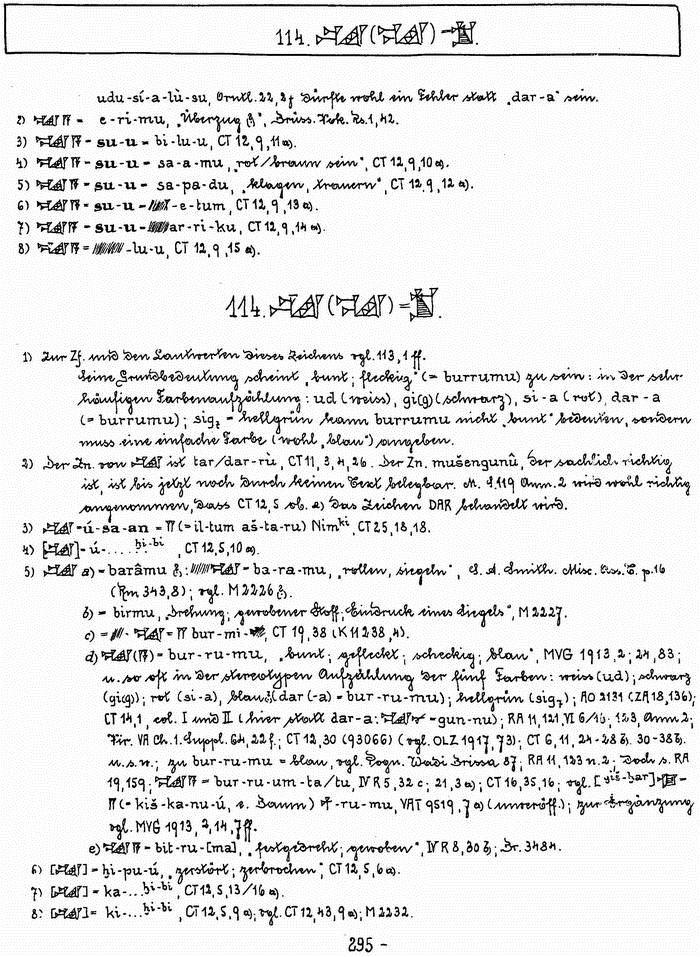 114. (
udu-sí-a-lù-su, Orntl. 22, 2f dürfte wohl ein Fehler statt „dar-a“ sein.
2) = e-ri-mu, „Überzug“, Brüss. Vok. Rs. 1, 42.
3) = su-u = bi-lu-u, CT 12, 9, 11a).
4) = su-u = sa-a-mu, „rot/braun sein“, CT 12, 9, 10a).
5) = su-u = sa-pa-du, „klagen, trauern“, CT 12, 9, 12a).
6) = su-u = -e-tum, CT 12, 9, 13a).
7) = su-u = ar-ri-ku, CT 12, 9, 14a).
8) = -lu-u, CT 12, 9, 15a).
114.
1) Zur Zf. und den Lautwerten dieses Zeichens vgl. 113, 1 ff.
Seine Grundbedeutung scheint „bunt; fleckig“ (= burrumu) zu sein: in der sehr
häufigen Farbenaufzählung: ud (weiss), gi(g) (schwarz), si-a (rot), dar-a
(= burrumu); sig₇ = hellgrün kann burrumu nicht „bunt“ bedeuten, sondern
muss eine einfache Farbe (wohl „blau“) angeben.
2) Der Zn. von ist tar/dar-rù, CT 11, 3, 4, 26. Der Zn. mušengunû, der sachlich richtig
ist, ist bis jetzt noch durch keinen Text belegbar. M. S. 119 Anm. 2 wird wohl richtig
angenommen, dass CT 12, 5 ob. a) das Zeichen DAR behandelt wird.
3) = ú-sa-an = (= il-tum aš-ta-ru) Nimki, CT 25, 18, 18.
4) [ ] = ú-....ḫi-bi, CT 12, 5, 10a).
5) a) = barâmu : = ba-ra-mu, „rollen, siegeln“, S. A. Smith. Misc. Ass. T. p. 16
(Rm 343, 8); vgl. M 2226
b) = birmu, „Drehung; gewobener Stoff; Eindruck eines Siegels“, M 2227.
c) = = bur-mi-, CT 19, 38 (K 11238, 4).
d) = bur-ru-mu, „bunt; gefleckt; scheckig; blau“, MVG 1913, 2; 24, 83;
u. so oft in der stereotypen Aufzählung der fünf Farben: weiss (ud); schwarz
(gi(g)); rot (si-a), blau (dar(-a) = bur-ru-mu); hellgrün (sig₇); AO 2131 (ZA 18, 136);
CT 14, 1, col. I und II (hier statt dar-a: = gun-nu); RA 11, 121, VI 6/; 123, Anm. 2;
Vir. VA Ch. 1. Suppl. 64, 22f.; CT 12, 30 (93066) (vgl. OLZ 1917, 73); CT 6, 11, 24-28 30-38
u.s.w.; zu bur-ru-mu = blau, vgl. Pogn. Wadi Brissa 87; RA 11, 123 n. 2; doch s. RA
19, 159; = bur-ru-um-ta/tu, IV R 5, 32 c; 21, 3a); CT 16, 35, 16; vgl. [giš-ḫar]
(= kiš-ka-nu-ú, e. Baum) -ru-mu, VAT 9519, 7a) (unveröff.); zur Ergänzung
vgl. MVG 1913, 2, 14, 7 ff.
e) = bit-ru-[ma], „festgedreht; gewoben“, IV R 8, 30; Br. 3484.
6) [ ] = ḫi-pu-ú, „zerstört; zerbrochen“, CT 12, 5, 6a).
7) [ ] = ka-...ḫi-bi, CT 12, 5, 13/16a).
8) [ ] = ki-...ḫi-bi, CT 12, 5, 9a); vgl. CT 12, 43, 9a); M 2232.
295 -